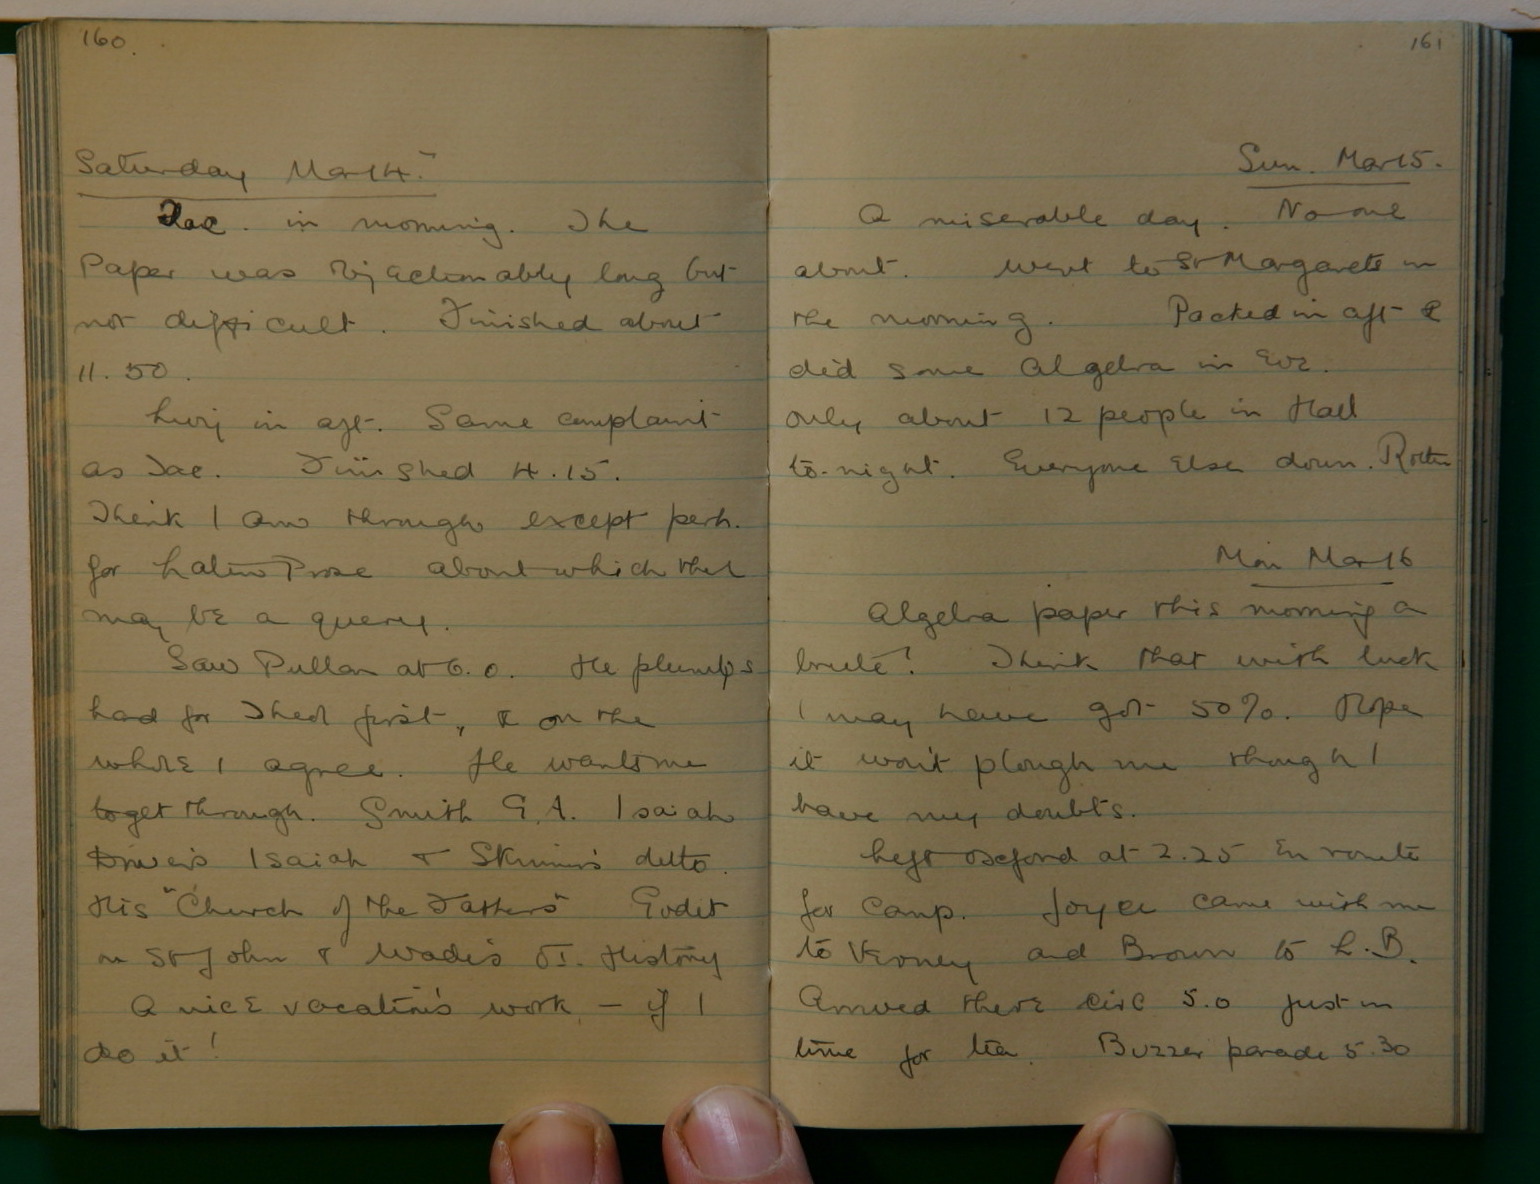 160.
Saturday Mar 14.
Tac. in morning. The
Paper was objectionably long but
not difficult. Finished about
11.50.
Livy in aft. Same complaint
as Tac. Finished 4.15.
Think I am through except perh.
for Latin Prose about which there
may be a query.
Saw Pullan at 6.0. He plumps
hard for Theol first, & on the
whole I agree. He wants me
to get through. Smith G.A. Isaiah
Driver's Isaiah & Skinner's ditto.
His "Church of the Fathers" Godet
on St John & Wade's O.T. History
A nice vacation's work, — if I
do it!
161
Sun. Mar 15.
A miserable day. No one
about. Went to St Margarets in
the morning. Packed in aft &
did some Algebra in Eve.
only about 12 people in Hall
to-night. Everyone Else down. Rotten
Mon Mar 16
Algebra paper this morning a
brute! Think that with luck
I may have got 50%. Hope
it won't plough me though I
have my doubts.
Left Oxford at 2.25 En route
for Camp. Joyce came with me
to Verney and Brown to L.B.
Arrived there circ 5.0 just in
time for tea. Buzzer parade 5.30